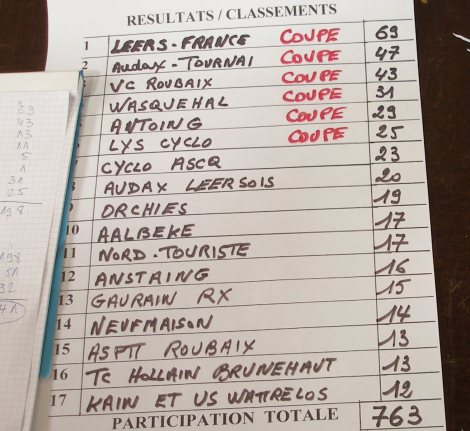 RESULTATS / CLASSEMENTS
1 LEERS - FRANCE COUPE 69
2 AUDAX - TOURNAI COUPE 47
VC ROUBAIX COUPE 43
WASQUEHAL COUPE 31
ANTOING COUPE 29
LYS CYCLO COUPE 25
CYCLO ASCQ 23
AUDAX LEERSOIS 20
ORCHIES 19
10 AALBEKE 17
11 NORD. TOURISTE 17
12 ANSTAING 16
13 GAURAIN RX 15
14 NEUFMAISON 14
15 ASPTT ROUBAIX 13
16 TC HOLLAIN BRUNEHAUT 13
17 KAIN ET US WATTRELOS 12
PARTICIPATION TOTALE 763
29
43
13
11
5
1
31
25
198